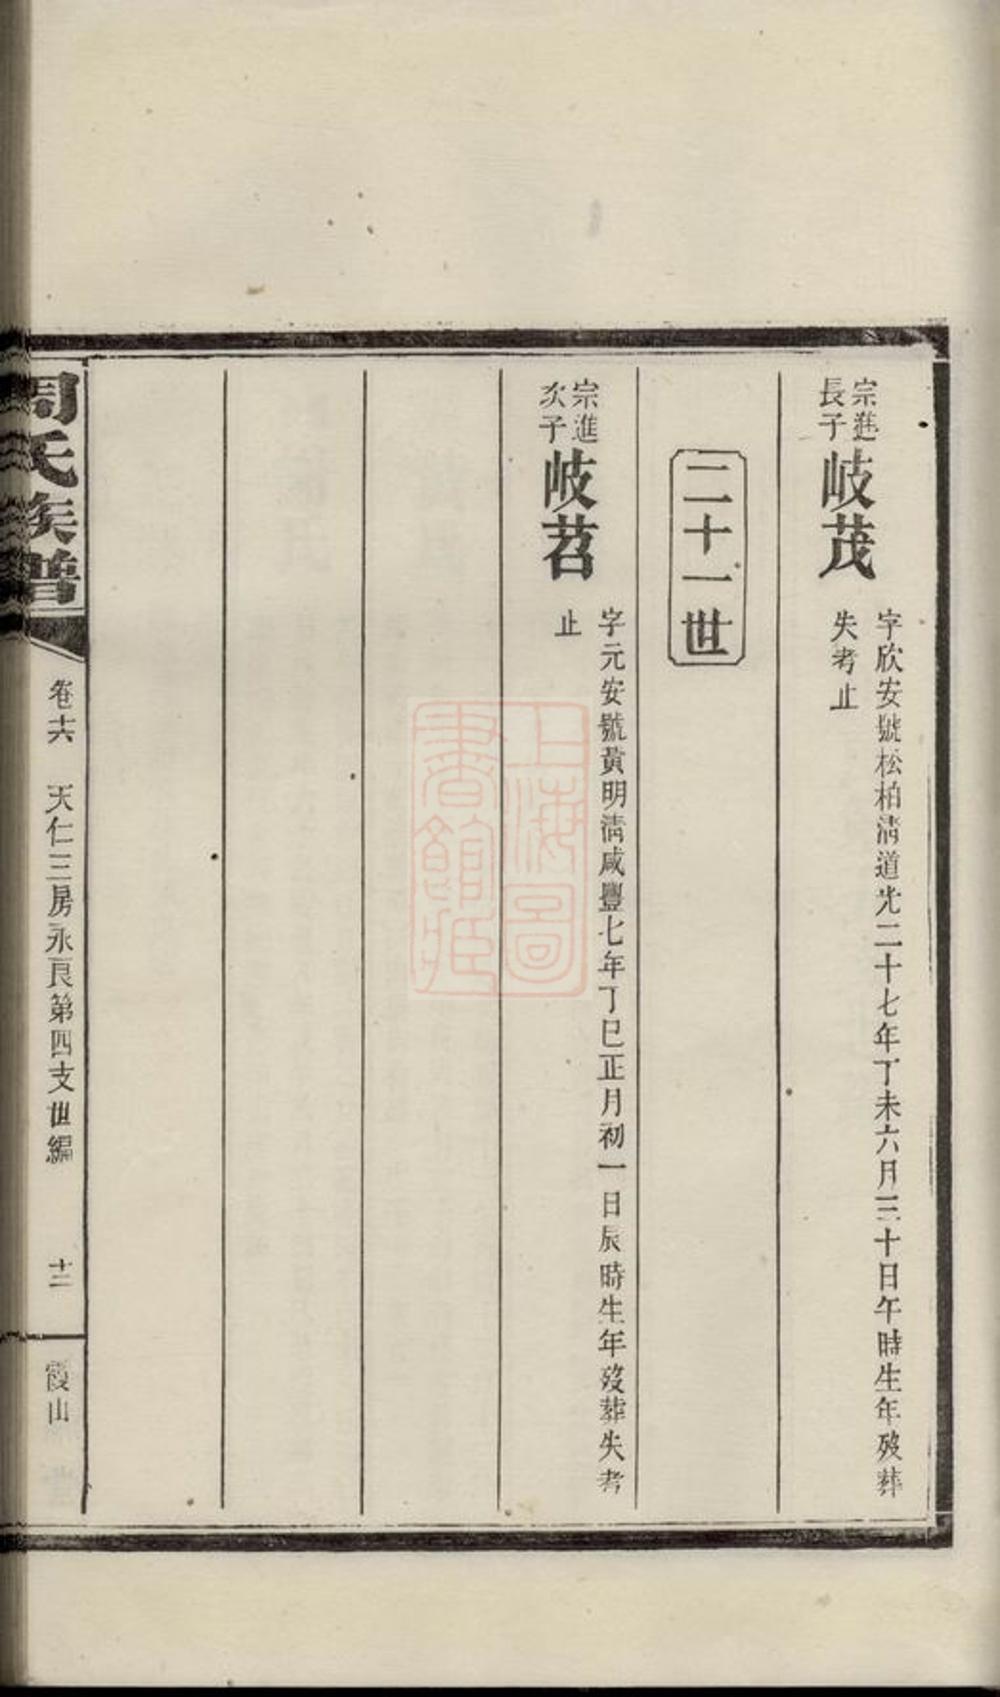 宗進
長子
岐茂
字欣安號松柏清道光二十七年丁未六月三十日午時生年歿葬
失考止
二十一世
宗進
次子
岐苕
字元安號黃明清咸豐七年丁巳正月初一日辰時生年歿葬失考
止
周氏族譜
卷十六 天仁三房永良第四支世編 十二 霞山
上海圖
書館藏